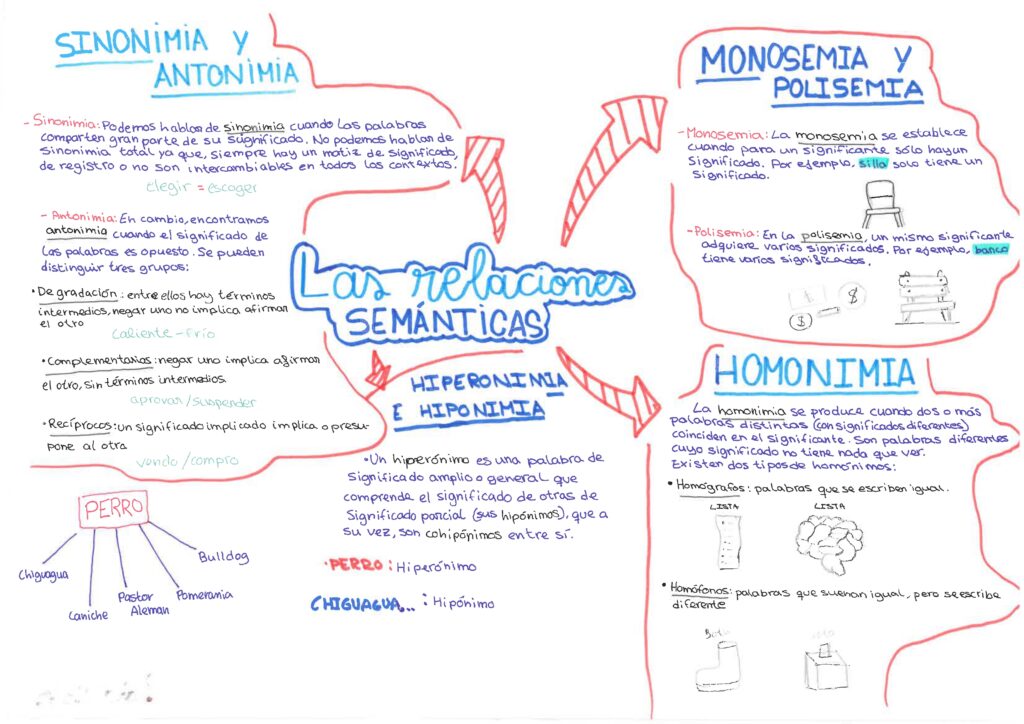 SINONIMIA Y
ANTONIMIA
- Sinonimia: Podemos hablar de sinonimia cuando las palabras
comparten gran parte de su significado. No podemos hablar de
sinonimia total ya que, siempre hay un matiz de significado,
de registro o no son intercambiables en todos los contextos.
elegir = escoger
- Antonimia: En cambio, encontramos
antonimia cuando el significado de
las palabras es opuesto. Se pueden
distinguir tres grupos:
• De gradación: entre ellos hay términos
intermedios, negar uno no implica afirmar
el otro
caliente - frío
• Complementarios: negar uno implica afirmar
el otro, sin términos intermedios.
aprovar/suspender
• Recíprocos: un significado implicado implica o presu-
pone al otro
vendo/compro
Las relaciones
SEMÁNTICAS
MONOSEMIA Y
POLISEMIA
- Monosemia: La monosemia se establece
cuando para un significante sólo hay un
significado. Por ejemplo, silla solo tiene un
significado.
- Polisemia: En la polisemia, un mismo significante
adquiere varios significados. Por ejemplo, banco
tiene varios significados.
$
$
HIPERONIMIA
E HIPONIMIA
• Un hiperónimo es una palabra de
significado amplio o general que
comprende el significado de otras de
significado parcial (sus hipónimos), que a
su vez, son cohipónimos entre sí.
• PERRO: Hiperónimo
CHIGUAGUA...: Hipónimo
PERRO
Chiguagua
Caniche
Pastor
Aleman
Pomerania
Bulldog
HOMONIMIA
La homonimia se produce cuando dos o más
palabras distintas (con significados diferentes)
coinciden en el significante. Son palabras diferentes
cuyo significado no tiene nada que ver.
Existen dos tipos de homónimos:
• Homógrafos: palabras que se escriben igual.
LISTA
LISTA
• Homófonos: palabras que suenan igual, pero se escribe
diferente